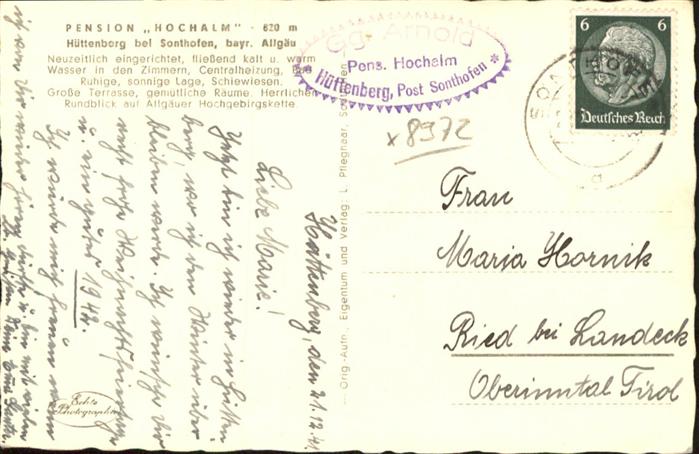 PENSION „HOCHALM" · 820 m
Hüttenberg bei Sonthofen, bayr. Allgäu
Neuzeitlich eingerichtet, fließend kalt u. warm
Wasser in den Zimmern, Centralheizung, Bad
Ruhige, sonnige Lage, Schiewiesen.
Große Terrasse, gemütliche Räume. Herrlichen
Rundblick auf Allgäuer Hochgebirgskette.
Gg. Arnold
Pens. Hochalm
* Hüttenberg, Post Sonthofen *
x 8972
6 6
Deutsches Reich
SON
a
Hüttenberg, den 21.12.41
Liebe Marie!
Jetzt bin ich wieder in Hütten-
berg, wo ich den Winter über
bleiben werde. Ich wünsche Dir
recht frohe Weihnachtsfeiertage
u. ein gutes 1942.
Ich würde mich freuen wenn
ich von Dir wieder hören dürfte u. bin mit vielen
Orig.-Aufn., Eigentum und Verlag: L. Pflegnaar, Sonthofen
Frau
Maria Hornik
Ried bei Landeck
Oberinntal Tirol
Echte
Photographie